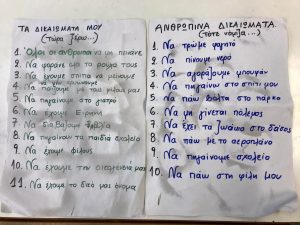 ΤΑ ΔΙΚΑΙΩΜΑΤΑ ΜΟΥ
(τώρα ξέρω...)
1. Όλοι οι άνθρωποι να μη πεινάνε
2. Να φοράνε τα ρούχα τους
3. Να έχουμε σπίτι να μείνουμε
4. Να παίζουμε με τους φίλους μας
5. Να πηγαίνουμε στο γιατρό
6. Να έχουμε Ειρήνη
7. Να διαβάζουμε βιβλία
8. Να πηγαίνουν τα παιδιά σχολείο
9. Να έχουμε φίλους
10. Να έχουμε την οικογένειά μας
11. Να έχουμε το δικό μας όνομα
ΑΝΘΡΩΠΙΝΑ ΔΙΚΑΙΩΜΑΤΑ
(τότε νόμιζα...)
1. Να τρώμε φαγητό
2. Να πίνουμε νερό
3. Να αγοράζουμε μπουφάν
4. Να πηγαίνω στο σπίτι μου
5. Να πάω βόλτα στο πάρκο
6. Να μη γίνεται πόλεμος
7. Να έχει τα ζωάκια στο δάσος
8. Να πάω με το αεροπλάνο
9. Να πηγαίνουμε σχολείο
10. Να πάω στη φίλη μου